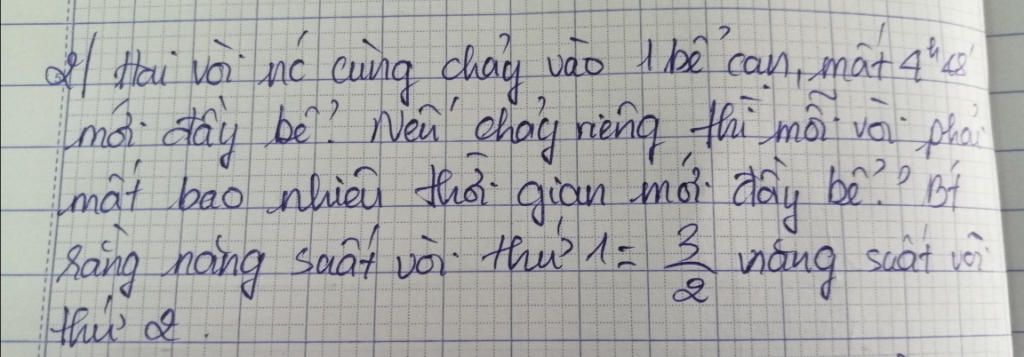 2/ Hai vòi nć cùng chảy vào 1 bể cạn, mất 4ʰ48'
mới đầy bể. Nếu chảy riêng thì mỗi vòi phải
mất bao nhiêu thời gian mới đầy bể? Bt
rằng năng suất vòi thứ 1 = 3/2 năng suất vòi
thứ 2.